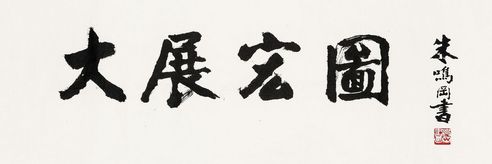 大展宏圖
朱鳴岡書